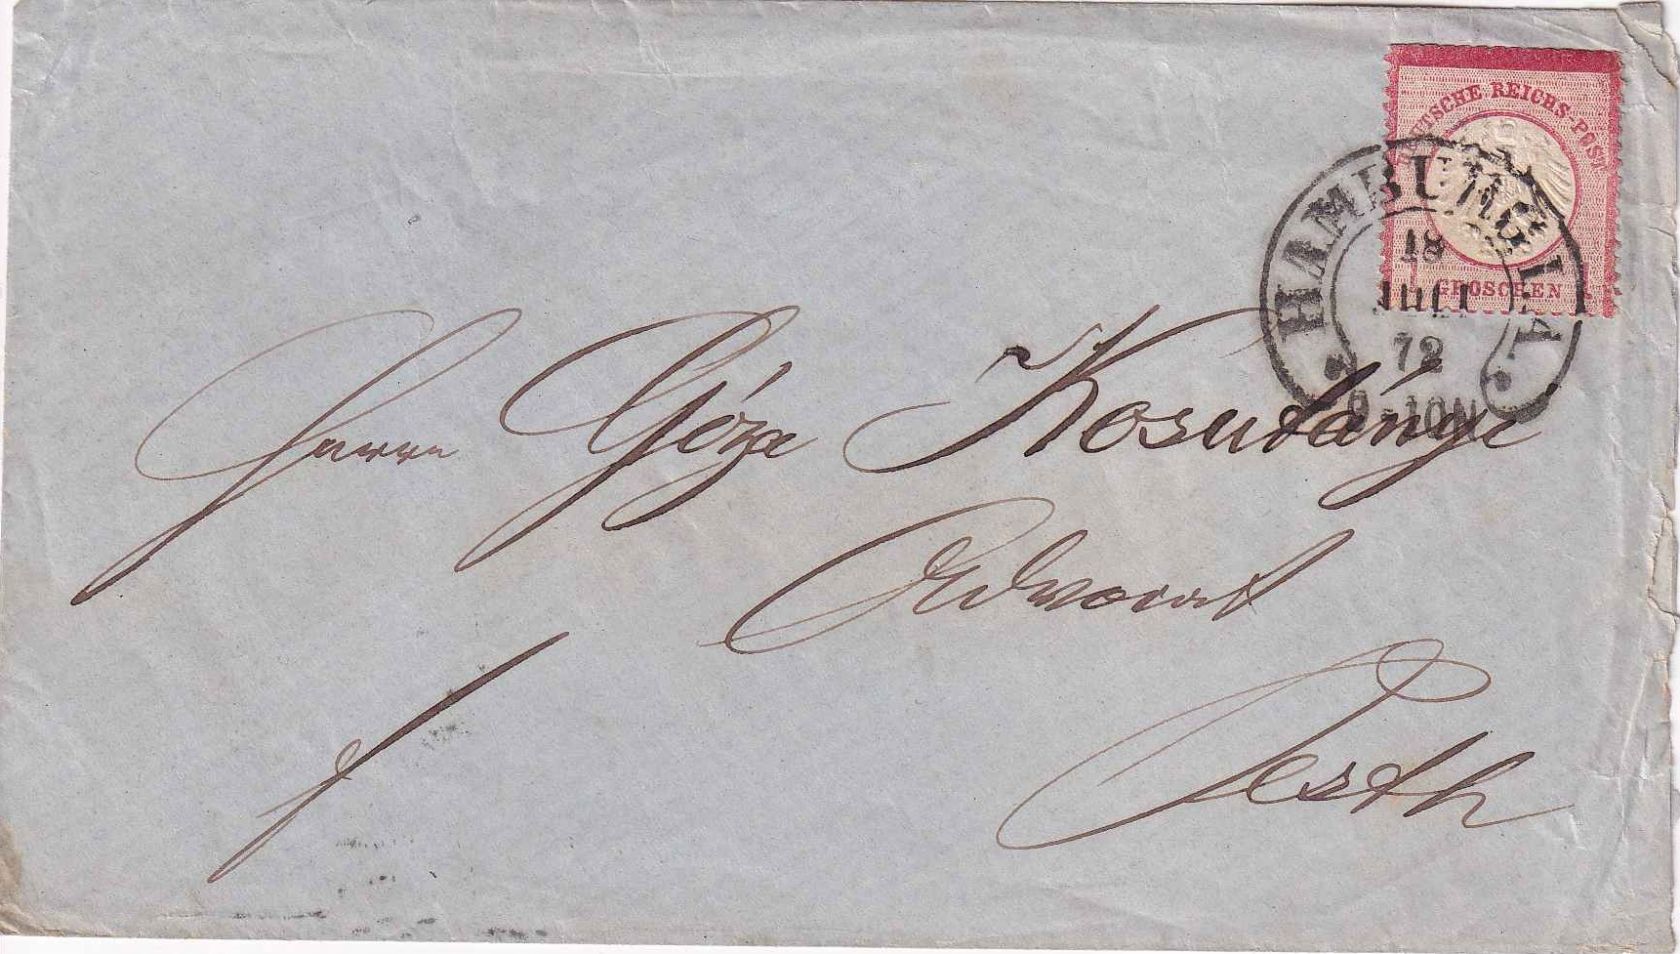 DEUTSCHE REICHS-POST
1 GROSCHEN
HAMBURG I.A.
18
JULI
72
9-10N
Herrn Géza Kosutányi
Advocat
Pesth